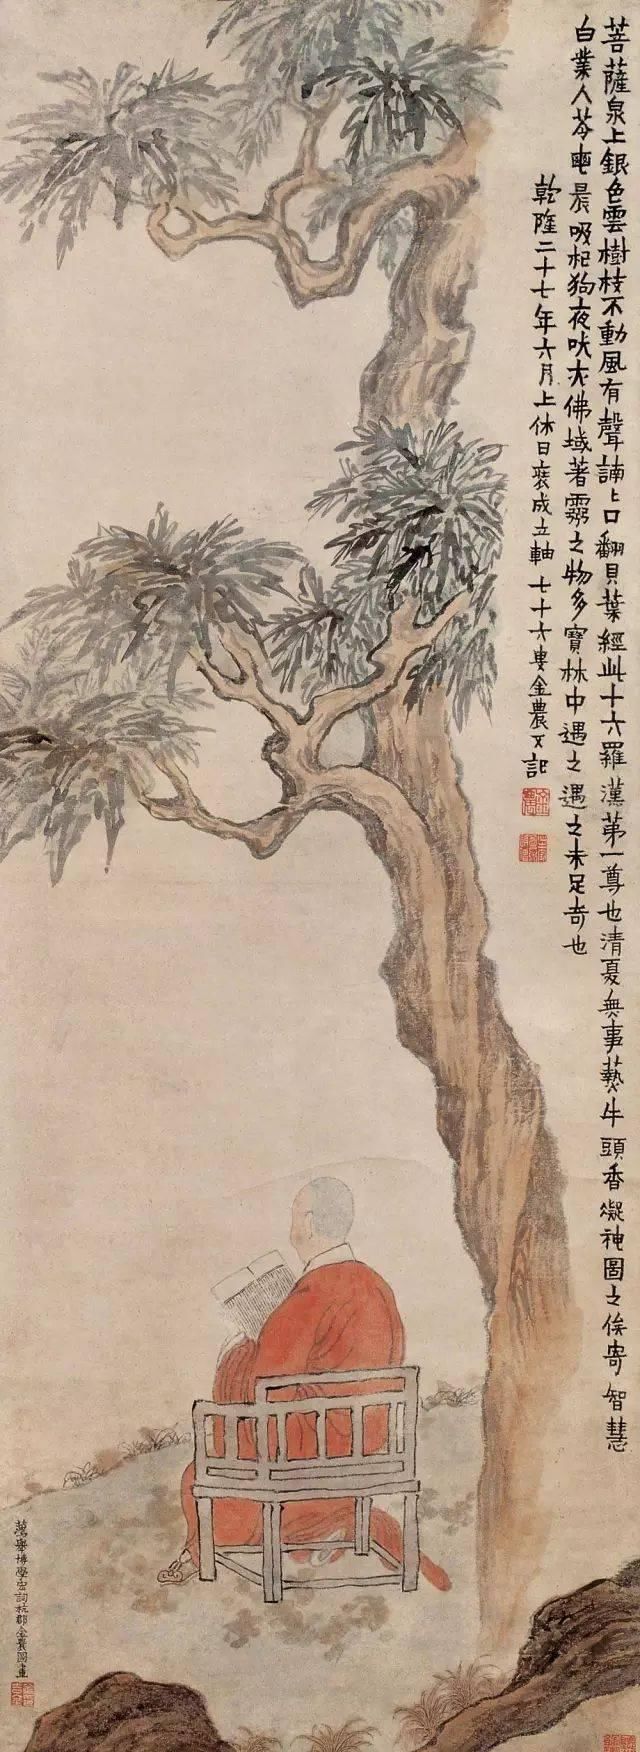 菩薩泉上銀色雲樹枝不動風有聲諵諵口翻貝葉經此十六羅漢第一尊也清夏無事爇牛頭香凝神圖之俟寄智慧
白業人苓 晨吸杞狗夜吠大佛域著靈之物多寶林中遇之遇之未足奇也
乾隆二十七年六月上休日裝成立軸七十六叟金農又記
薦舉博學宏詞杭郡金農圖畫